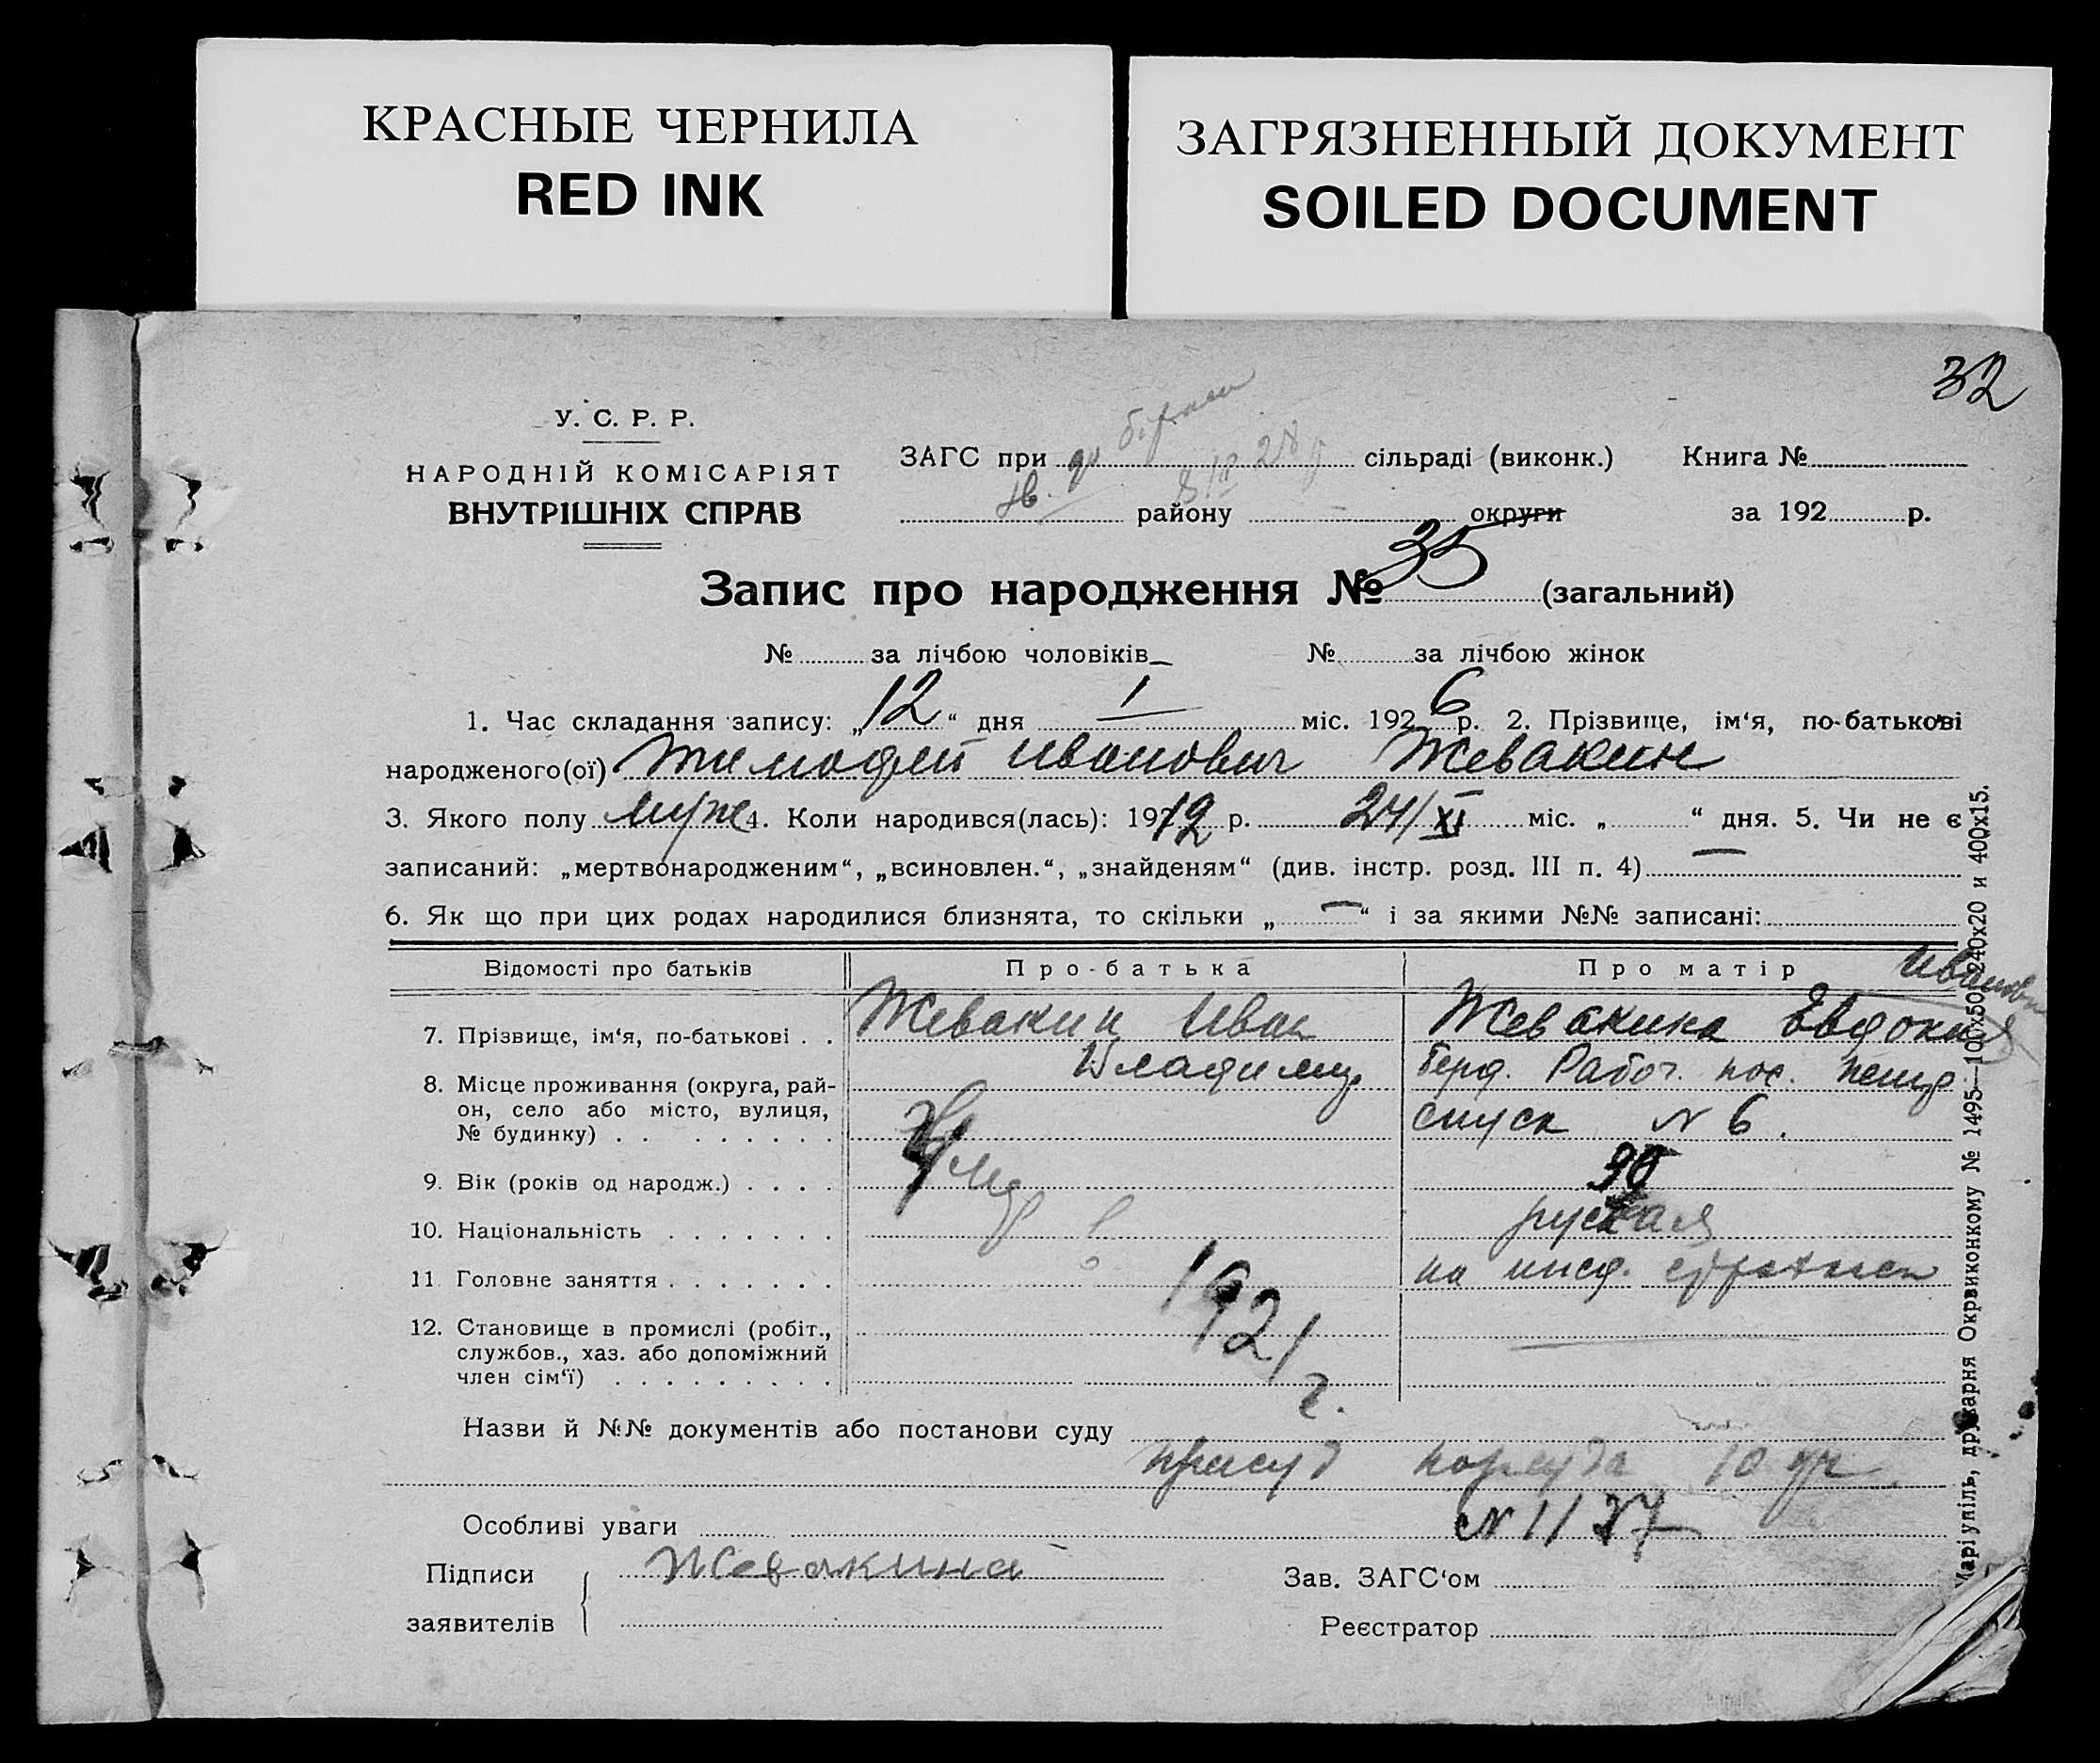 КРАСНЫЕ ЧЕРНИЛА
RED INK
ЗАГРЯЗНЕННЫЙ ДОКУМЕНТ
SOILED DOCUMENT
32
У. С. Р. Р.
НАРОДНІЙ КОМІСАРІЯТ
ВНУТРІШНІХ СПРАВ
ЗАГС при сільраді (виконк.) Книга №
району округи за 192 р.
Запис про народження № 35 (загальний)
№ за лічбою чоловіків № за лічбою жінок
1. Час складання запису: „12“ дня 1 міс. 1926 р. 2. Прізвище, ім‘я, по-батькові
народженого(ої) Тимофей Иванович Жевакин
3. Якого полу муж 4. Коли народився(лась): 1912 р. 24/XI міс. „ “ дня. 5. Чи не є
записаний: „мертвонародженим“, „всиновлен.“, „знайденям“ (див. інстр. розд. III п. 4) —
6. Як що при цих родах народилися близнята, то скільки „ — “ і за якими №№ записані:
Відомості про батьків Про-батька Про матір
7. Прізвище, ім‘я, по-батькові . . Жевакин Иван Владимир Жевакина Евдокия Ивановн
8. Місце проживання (округа, рай-
он, село або місто, вулиця,
№ будинку) . . . . . . . . .
Берд. Рабоч. пос.
спуск № 6.
Умер в 1921 г.
9. Вік (років од народж.) . . . . 30
10. Національність . . . . . . . руская
11 Головне заняття . . . . . . . на
12. Становище в промислі (робіт.,
службов., хаз. або допоміжний
член сім‘ї) . . . . . . . . .
Назви й №№ документів або постанови суду
присуд нарсуда 10
№ 1127
Особливі уваги
Підписи
заявителів
Жевакина
Зав. ЗАГС‘ом
Реєстратор
Маріупіль, друкарня Окрвиконкому № 1495—100х50 240х20 и 400х15.